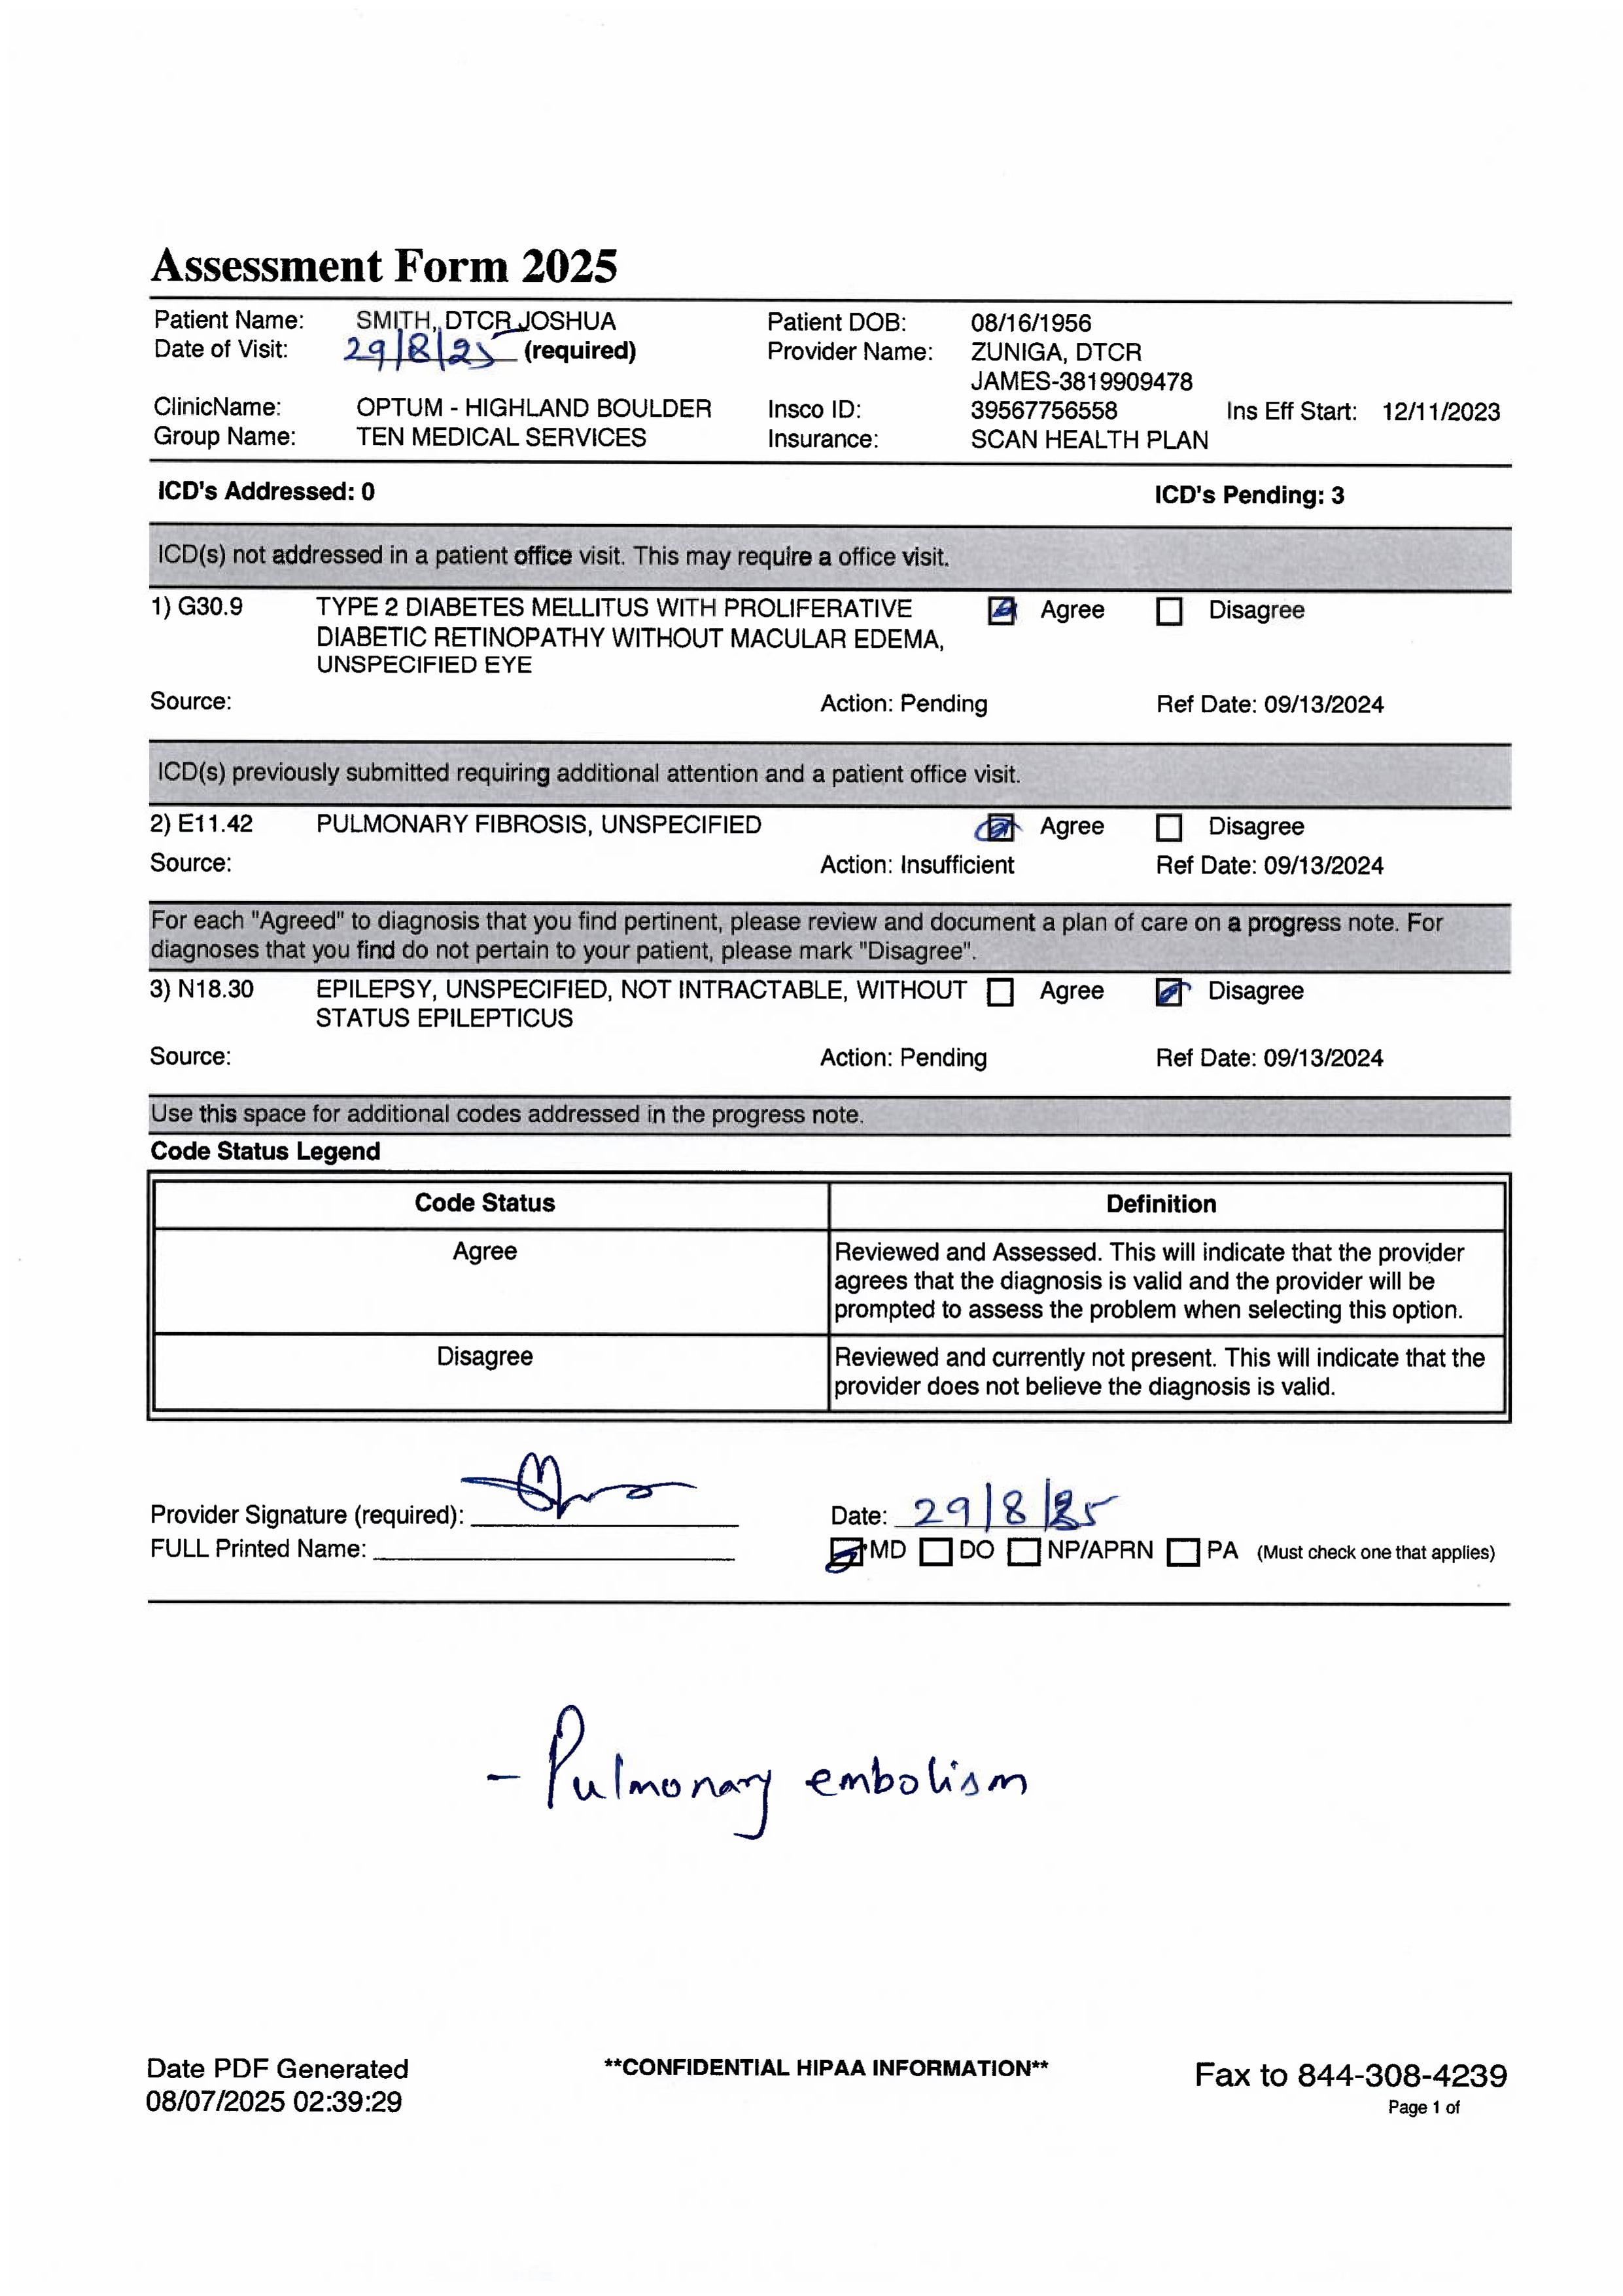 Assessment Form 2025
Patient Name: SMITH, DTCR JOSHUA Patient DOB: 08/16/1956
Date of Visit: 29/8/25 (required) Provider Name: ZUNIGA, DTCR
JAMES-3819909478
ClinicName: OPTUM - HIGHLAND BOULDER Insco ID: 39567756558 Ins Eff Start: 12/11/2023
Group Name: TEN MEDICAL SERVICES Insurance: SCAN HEALTH PLAN
ICD's Addressed: 0 ICD's Pending: 3
ICD(s) not addressed in a patient office visit. This may require a office visit.
1) G30.9 TYPE 2 DIABETES MELLITUS WITH PROLIFERATIVE Agree Disagree
DIABETIC RETINOPATHY WITHOUT MACULAR EDEMA,
UNSPECIFIED EYE
Source: Action: Pending Ref Date: 09/13/2024
ICD(s) previously submitted requiring additional attention and a patient office visit.
2) E11.42 PULMONARY FIBROSIS, UNSPECIFIED Agree Disagree
Source: Action: Insufficient Ref Date: 09/13/2024
For each "Agreed" to diagnosis that you find pertinent, please review and document a plan of care on a progress note. For
diagnoses that you find do not pertain to your patient, please mark "Disagree".
3) N18.30 EPILEPSY, UNSPECIFIED, NOT INTRACTABLE, WITHOUT Agree Disagree
STATUS EPILEPTICUS
Source: Action: Pending Ref Date: 09/13/2024
Use this space for additional codes addressed in the progress note.
Code Status Legend
Code Status Definition
Agree Reviewed and Assessed. This will indicate that the provider
agrees that the diagnosis is valid and the provider will be
prompted to assess the problem when selecting this option.
Disagree Reviewed and currently not present. This will indicate that the
provider does not believe the diagnosis is valid.
Provider Signature (required): Date: 29/8/25
FULL Printed Name: MD DO NP/APRN PA (Must check one that applies)
- Pulmonary embolism
Date PDF Generated **CONFIDENTIAL HIPAA INFORMATION** Fax to 844-308-4239
08/07/2025 02:39:29 Page 1 of